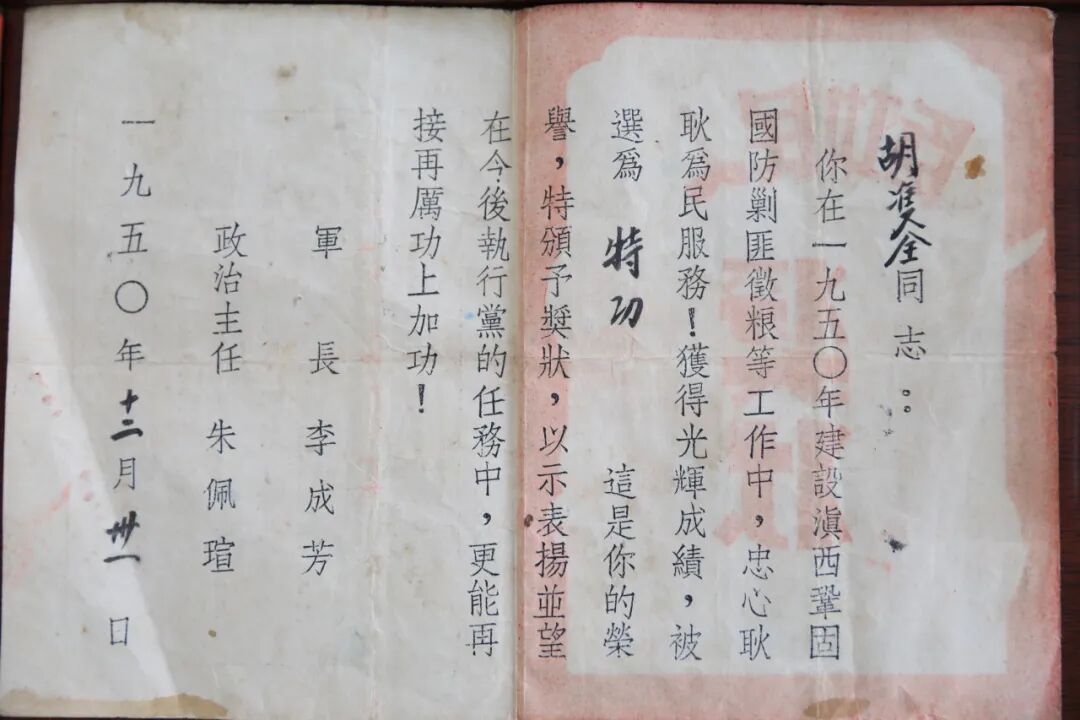 胡全同志：
你在一九五〇年建設滇西鞏固
國防剿匪徵粮等工作中，忠心耿
耿爲民服務！獲得光輝成績，被
選爲 特功 這是你的榮
譽，特頒予獎狀，以示表揚並望
在今後執行黨的任務中，更能再
接再厲功上加功！
軍 長 李成芳
政治主任 朱佩瑄
一九五〇年十二月卅一日